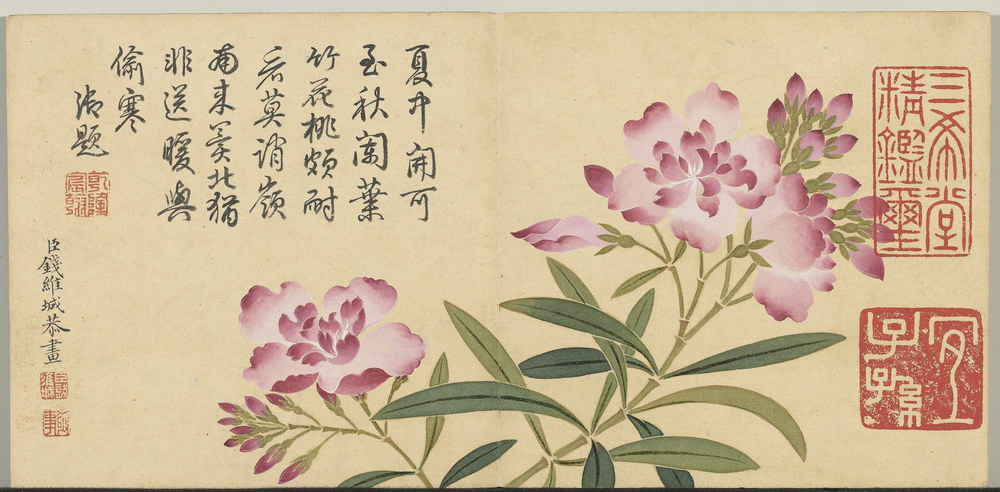 三希堂
精鑑璽
宜
子孫
夏開可
至秋闌葉
竹花桃頗耐
看莫誚嶺
南来冀北猶
非送暖與
偷寒
御題
乾隆
宸翰
臣錢維城恭畫